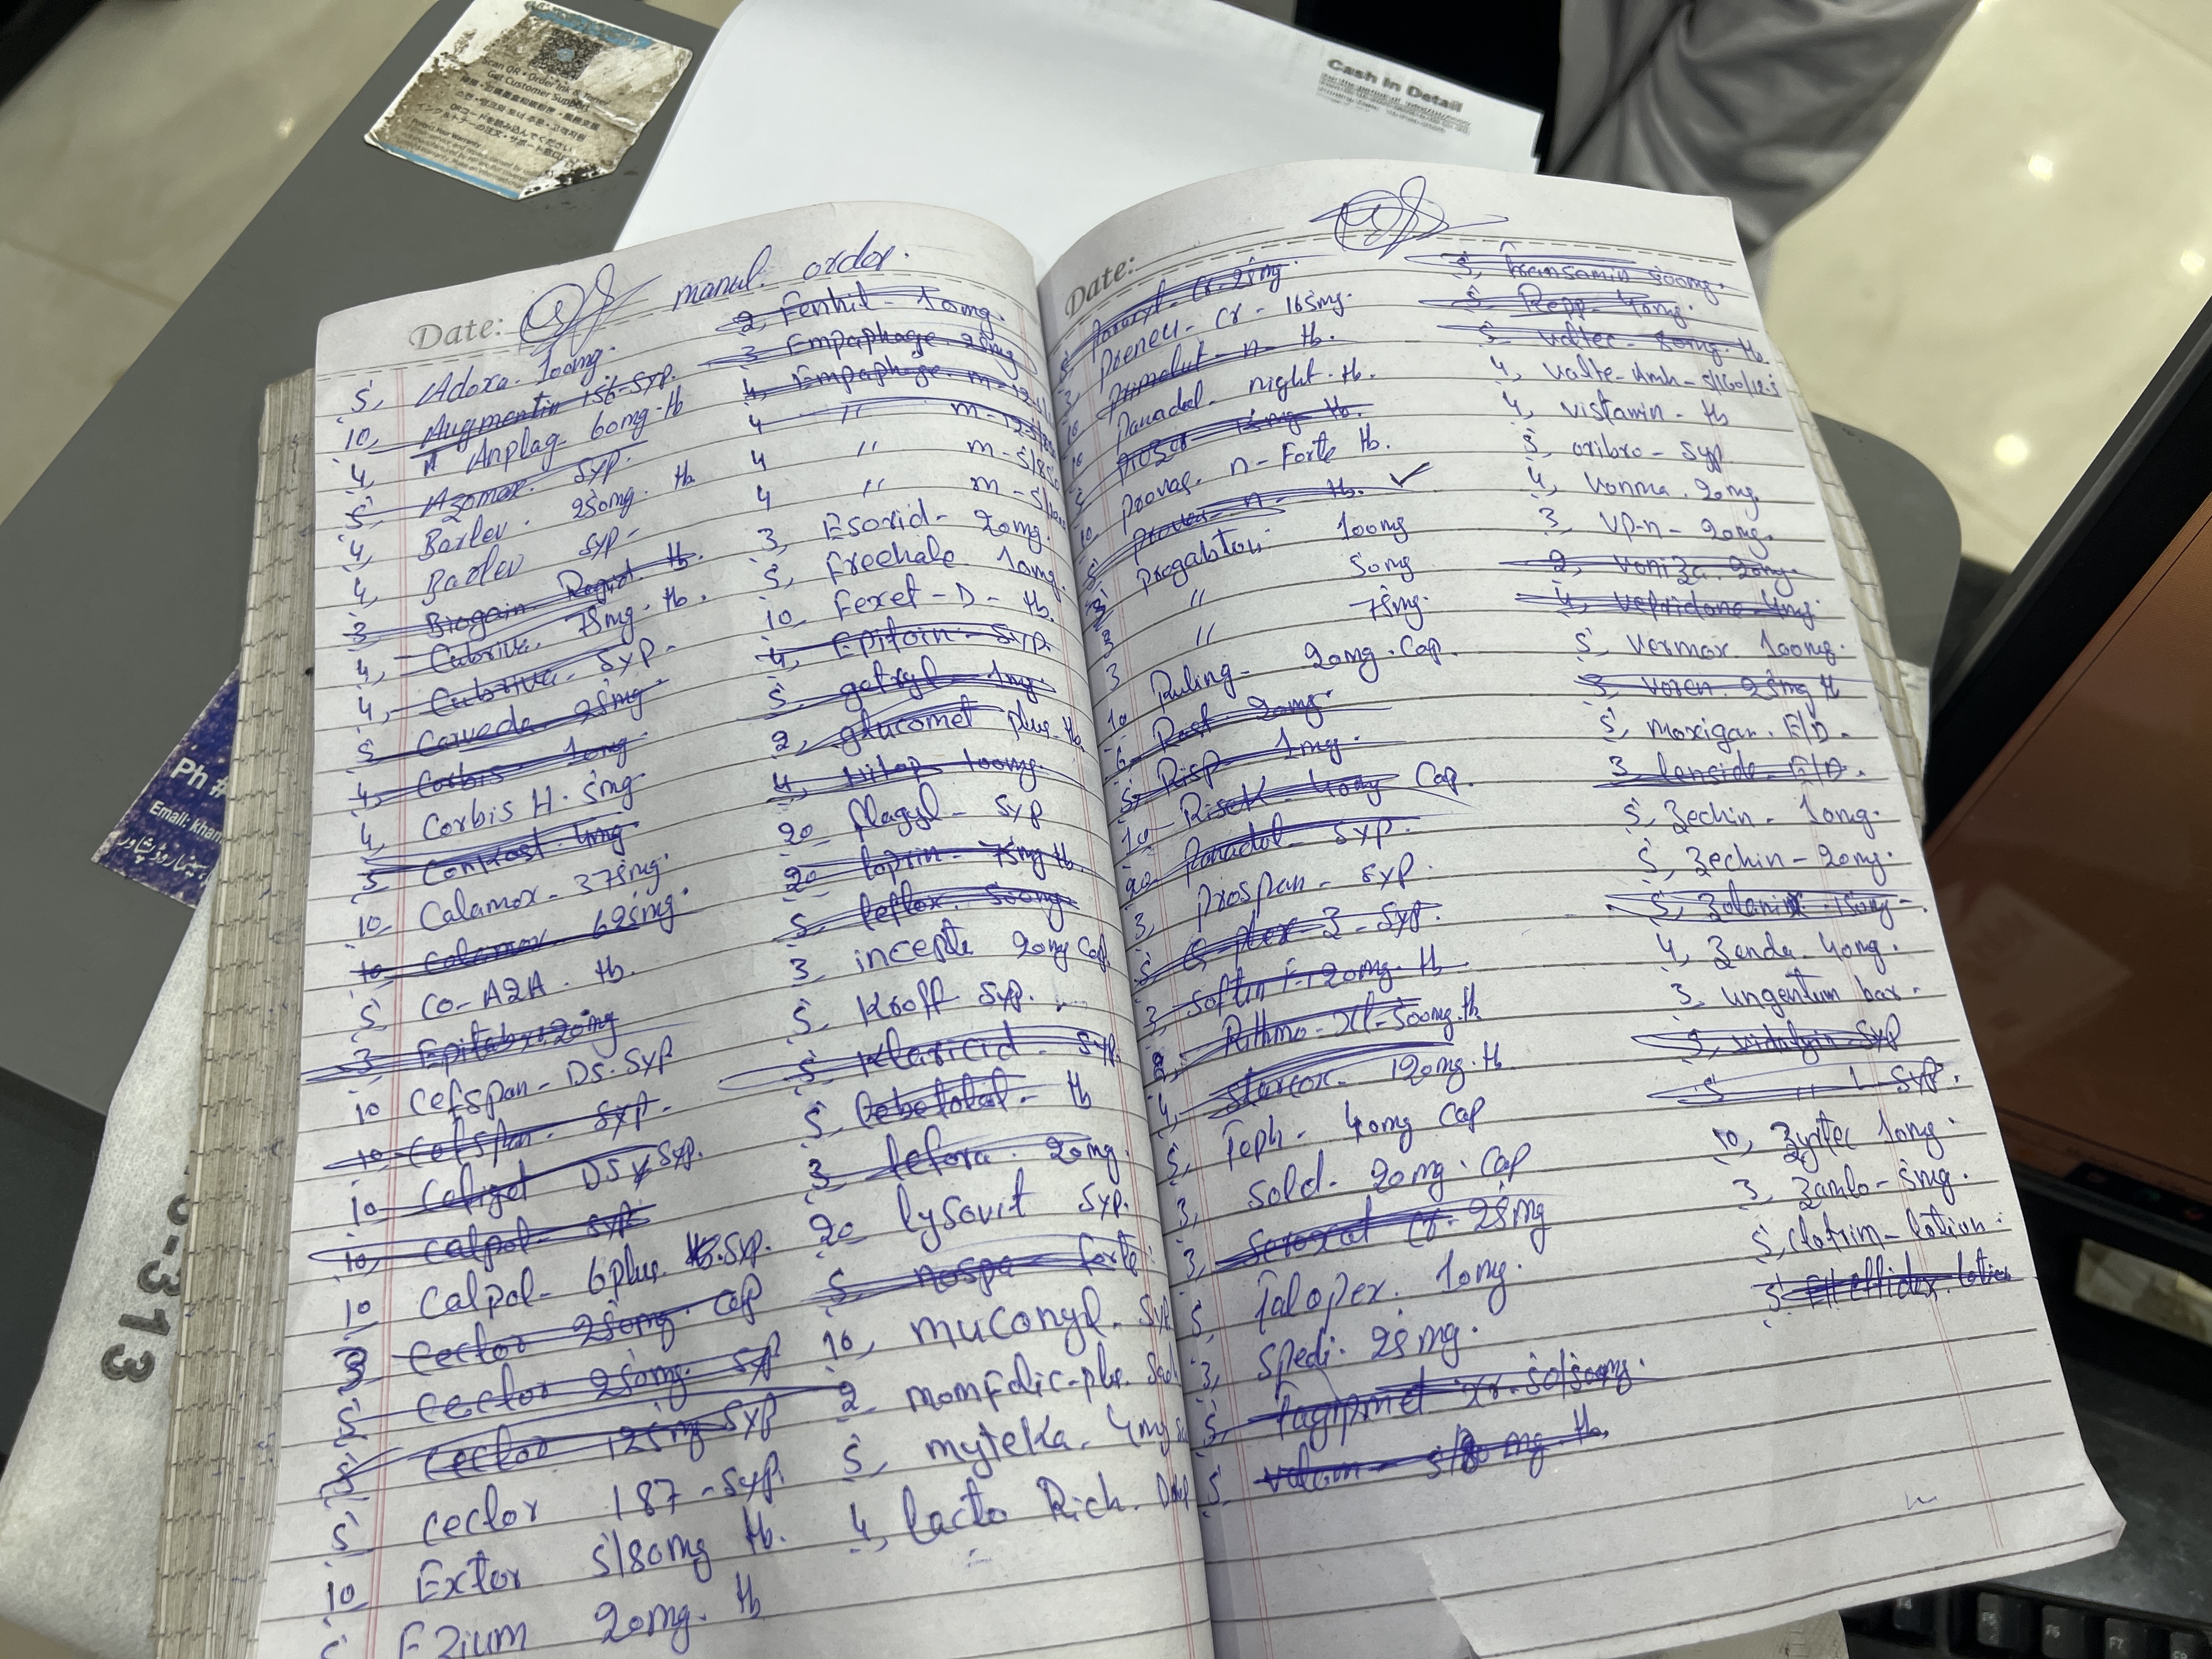 Scan QR • Order Ink & Toner
Get Customer Support
Cash in Detail
Ph #
Email: kham
313
Date:
manul. order.
5, Adoxa. 100mg.
10, Augmentin 156-syp.
4, Anplag 60mg. tb
5, Azomax. syp.
4, Barlev. 250mg. tb
4, Barlev syp-
3 Biogain Rapid. tb.
4, Cubriva. 75mg. tb.
4, Cubriva. syp-
5 Corveda 25mg
4, Corbis 10mg
4, Corbis H. 5mg
5 Comkast 4mg
10 Calamox- 375mg.
10 Calamox- 625mg.
5 Co-A2A. tb.
3 Epitab xr 20mg
10 Cefspan- DS. syp
10 Cefspan- syp-
10 Cefiget DS syp.
10, Calpol- syp
10 Calpol- 6plus. syp.
3 Ceclor 250mg. Cap
5 Ceclor 250mg. syp
5 Ceclor 125mg syp
5 Ceclor 187-syp.
10 Extor 5/80mg tb.
5 Ezium 20mg. tb
2, Fenhil- 10mg.
3 Empaphage. 25mg
4, Empaphage. m-12.5
4 " m-12.5
4 " m-5/85
4 " m-5
3, Esoxid- 20mg.
5, Freehale 10mg
10 Feret-D- tb.
4, Epitoin- syp.
5. getryl- 1mg.
2, glucomet plus. tb.
4, Hitop 100mg.
20 flagyl- syp
20 loprin- 75mg tb.
5. leflox. 500mg
3 incepta 20mg cap
5, Kroff syp.
5 Klaricid. syp.
5, tb
3 lefora. 20mg.
20 lysovit syp.
5 nospa forte.
10, muconyl. syp
2 momfolic-plus.
5, myteka. 4mg
4, lacto Rich. Drop
Date:
cr-25mg.
cr-165mg.
Primolut-n- tb.
10 Panadol. night-tb.
tb.
Provas. n-Forte tb.
10 Provas-n- tb. ✓
3 100mg
3 " 50mg
3 " 75mg.
10 Ruling- 20mg. Cap.
6 Rast 20mg.
5, Risp- 1mg.
10 Risek- 40mg Cap.
20 Panadol- syp.
3, Prospan- syp.
5 syp.
3, Softin F. 120mg. tb
Rithmo-xl-500mg. tb
4, Starcox- 120mg. tb
5, Toph- 40mg Cap
3, Sold- 20mg. Cap
3, Seroxat cr-25mg
5, Taloper. 10mg.
3, Spedi. 25mg.
5, Tagipmet xr-50/500mg.
5, 5/80mg. tb.
5, transamin 500mg.
5 Repp 40mg.
5 valtec- 80mg. tb.
4, valte-Amh-5/160/12.5
4, vistamin- tb
5, oribro- syp
4, vonma. 20mg.
3, VP-n- 20mg.
2, voniza. 20mg.
4, 4mg.
5, vermox. 100mg.
3, voren. 25mg tb
5, moxigan. E/D-
3 E/D-
5, Zechin- 10mg.
5, Zechin- 20mg.
5, Zolanix 15mg-
4, Zenda. 40mg.
3 ungentum bar-
5, vidalyin syp
5 " L syp.
10, Zyrtec 10mg.
3 Zamlo- 5mg.
5, Clotrim-lotion.
5 lotion